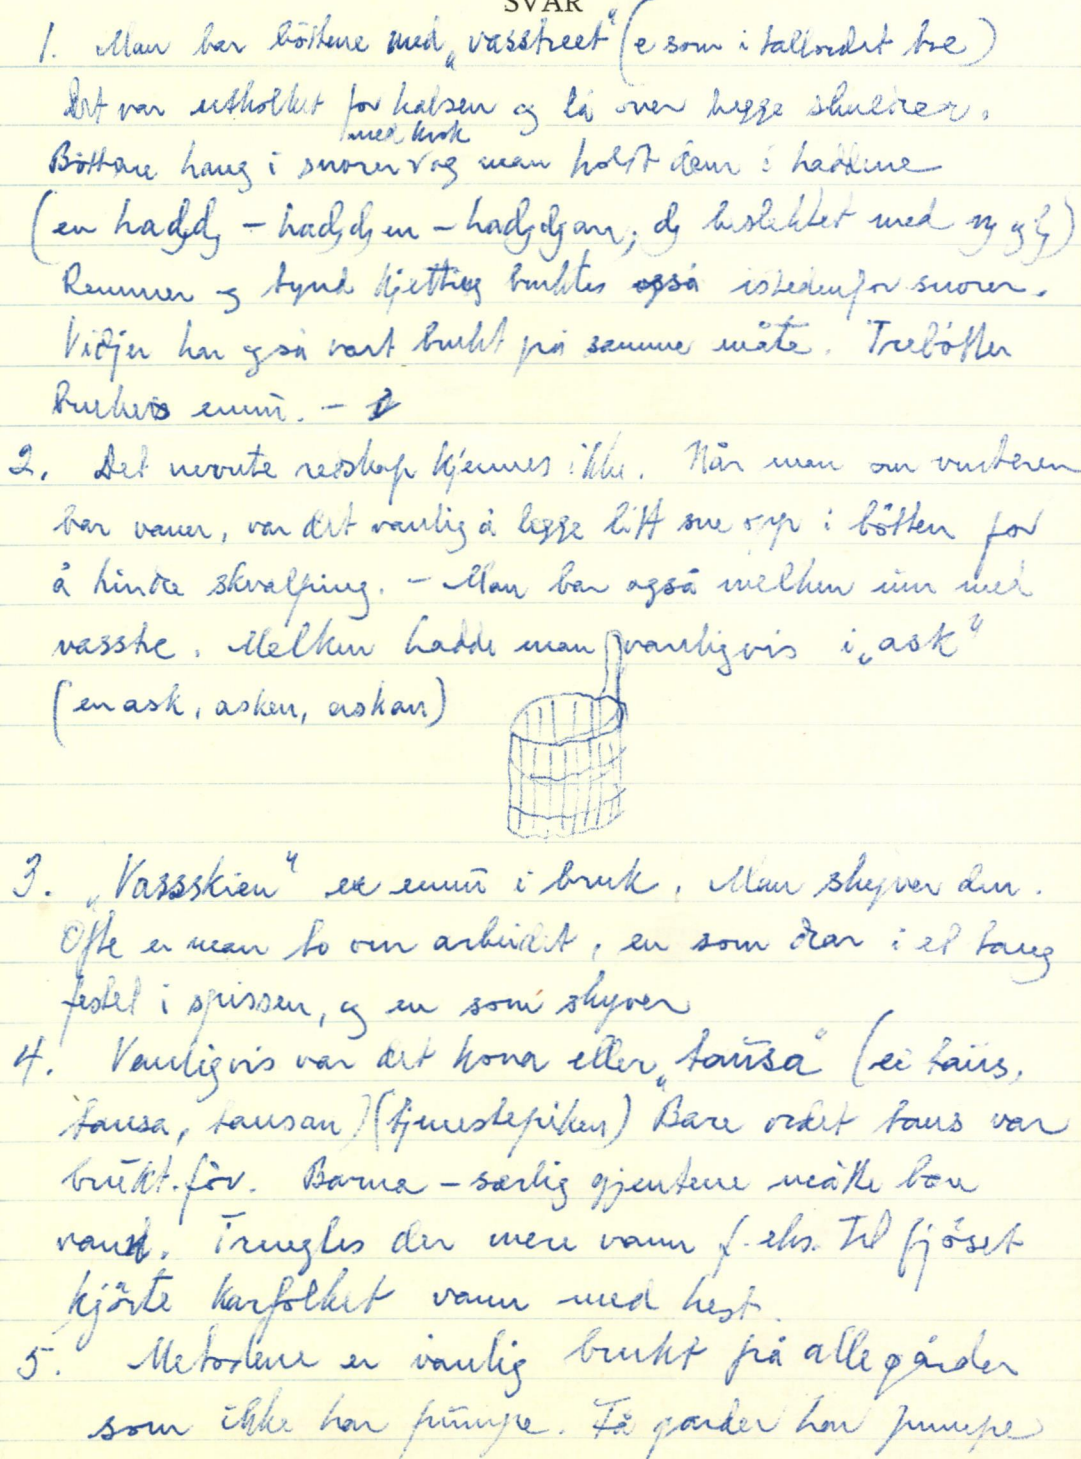 SVAR
1. Man bar böttene med „vasstreet" (e som i tallordet tre)
Det var utholket for halsen og lå över begge skuldrer.
med krok
Böttene hang i snorer og man holdt dem i haddene
(en hadd - hadden - haddan, beslektet med ng og
Remmer og tynd kjetting bruktes også istedenfor snorer.
Vidjer har også vært brukt på samme måte. Trebötter
brukes ennu. -
2. Det nevnte redskap kjennes ikke. Når man om vinteren
bar vann, var det vanlig å legge litt sne opp i bötten for
å hindre skvalping. - Man bar også melken inn med
vasstre. Melken hadde man vanligvis i „ask"
(en ask, asken, askan)
3. „Vassskien" er ennu i bruk. Man skyver den.
Ofte er man to om arbeidet, en som drar i et taug
festet i spissen, og en som skyver
4. Vanligvis var det kona eller „tausa" (ei taus,
tausa, tausan) (tjenestepiken) Bare ordet taus var
brukt för. Barna - særlig gjentene måtte bære
vann. Trengtes der mere vann f. eks. til fjöset
kjörte karfolket vann med hest.
5. Metodene er vanlig brukt på alle gårder
som ikke har pumpe. Få garder har pumpe